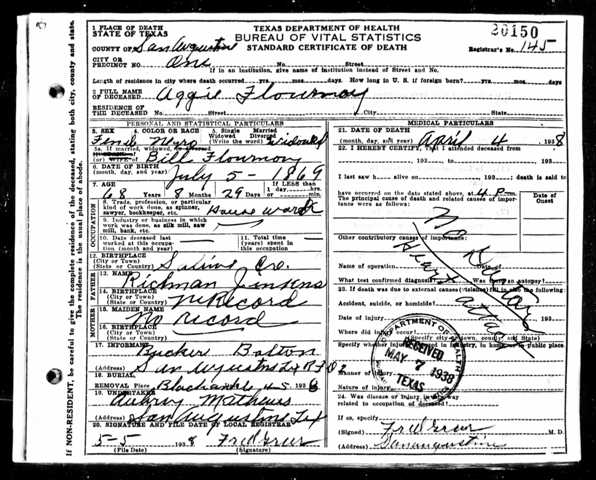 1 PLACE OF DEATH
STATE OF TEXAS
TEXAS DEPARTMENT OF HEALTH
BUREAU OF VITAL STATISTICS
STANDARD CERTIFICATE OF DEATH
20150
COUNTY OF San Augustine
Registrar's No. 145
CITY OR
PRECINCT NO. One No. Street
If in an institution, give name of institution instead of Street and No.
Length of residence in city where death occurred yrs. mos. days. How long in U. S. if foreign born? yrs. mos. days
2 FULL NAME
OF DECEASED Aggie Flournoy
RESIDENCE OF
THE DECEASED No. Street City State
PERSONAL AND STATISTICAL PARTICULARS
3. SEX 4. COLOR OR RACE 5. Single Married Widowed Divorced
Write the word Widowed
5a. If married, widowed, or divorced
Bill Flournoy
6. DATE OF BIRTH
(month, day, and year) July 5 - 1869
7. AGE If LESS than
1 day, hrs.
or min.
68 Years 8 Months 29 Days
OCCUPATION
8. Trade, profession, or particular
kind of work done, as spinner,
sawyer, bookkeeper, etc. House
9. Industry or business in which
work was done, as silk mill, saw
mill, bank, etc.
10. Date deceased last
worked at this occupation
(month and year)
11. Total time (years)
spent in this
occupation
12. BIRTHPLACE
(State or country) Co.
FATHER
13. NAME Richman Jenkins
14. BIRTHPLACE
(State or Country) Record
MOTHER
15. MAIDEN NAME No record
16. BIRTHPLACE
(State or Country)
17. INFORMANT Bolton
(Address) San Augustine Tx
18. BURIAL,
REMOVAL Place
19. UNDERTAKER
Aubry Mathews
(Address) San Augustine Tex
20. SIGNATURE AND FILE DATE OF LOCAL REGISTRAR
5-5 193 8
(File Date) (Signature)
MEDICAL PARTICULARS
21. DATE OF DEATH
(month, day, and year) April 4 193 8
22. I HEREBY CERTIFY, That I attended deceased from
193 to 193
I last saw h alive on 193 death is said to
have occurred on the date stated above, at 4 P. m.
The principal cause of death and related causes of importance
were as follows:
Date of
Onset
No Doctor
Heart attack
Other contributory causes of importance:
Name of operation
What test confirmed diagnosis Was there an autopsy?
23. If death was due to external causes (violence) fill in also the following:
Accident, suicide, or homicide?
Date of injury
Where did injury occur?
(Specify city or town, county and State)
Specify whether injury occurred in industry, in home, or in public place
Manner of injury
Nature of injury
24. Was disease or injury in any way
related to occupation of deceased?
If so, specify
(Signed) M. D.
(Address) San Augustine
DEPARTMENT OF HEALTH
RECEIVED
MAY 7 1938
TEXAS
If NON-RESIDENT, be careful to give the complete residence of the deceased, stating both city, county and state.
The residence is the usual place of abode.